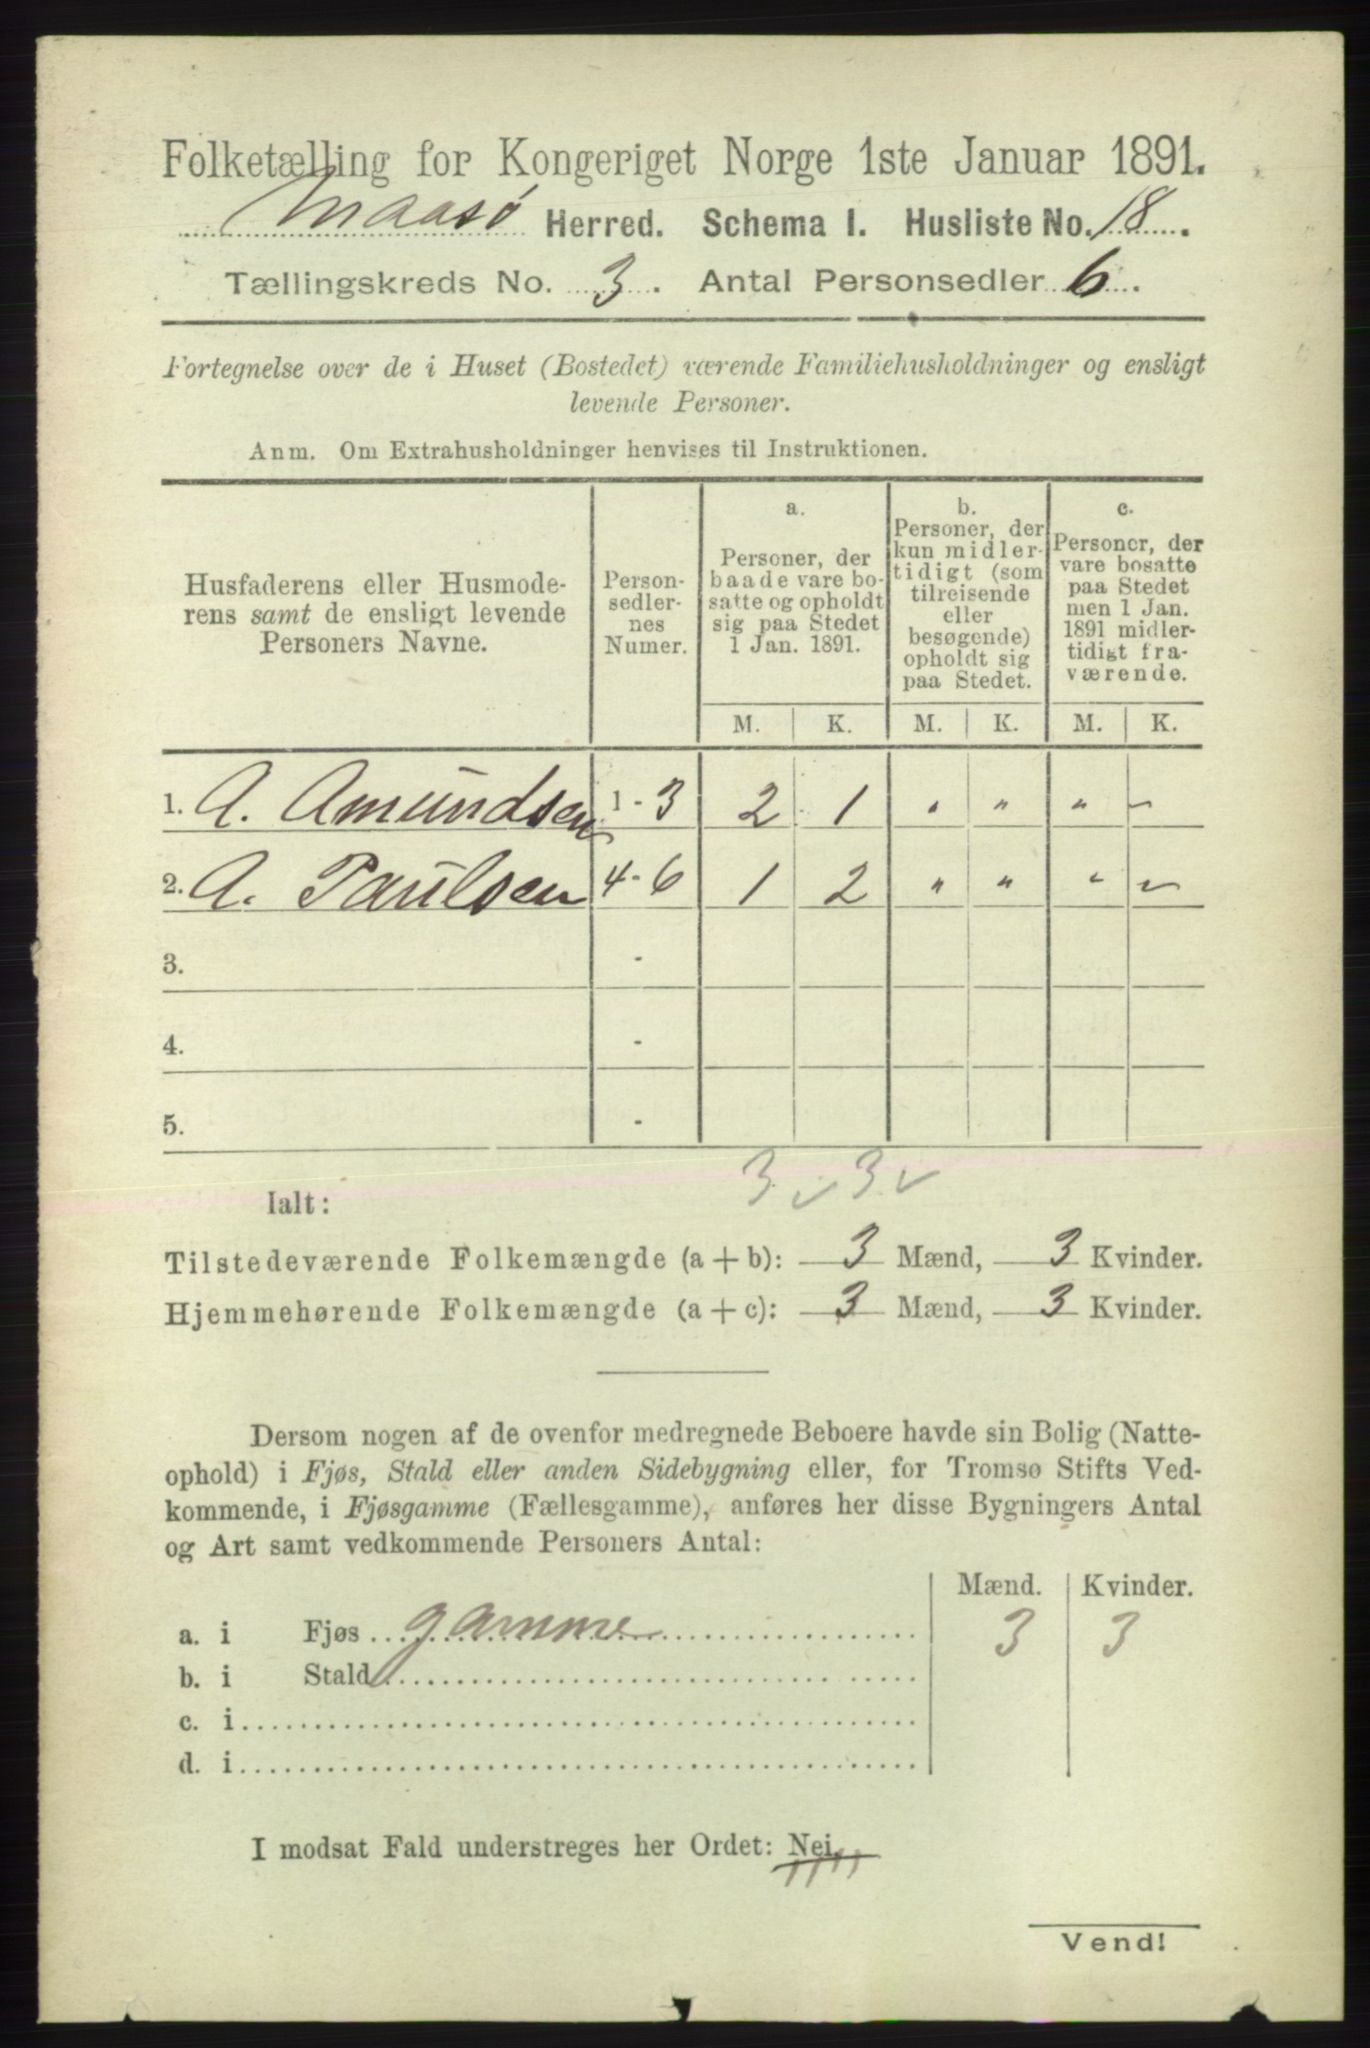 Folketælling for Kongeriget Norge 1ste Januar 1891.
Maasø Herred. Schema I. Husliste No. 18.
Tællingskreds No. 3. Antal Personsedler 6.
Fortegnelse over de i Huset (Bostedet) værende Familiehusholdninger og ensligt
levende Personer.
Anm. Om Extrahusholdninger henvises til Instruktionen.
Husfaderens eller Husmode-
rens samt de ensligt levende
Personers Navne.
Person-
sedler-
nes
Numer.
a.
Personer, der
baade vare bo-
satte og opholdt
sig paa Stedet
1 Jan. 1891.
b.
Personer, der
kun midler-
tidigt (som
tilreisende
eller
besøgende)
opholdt sig
paa Stedet.
c.
Personer, der
vare bosatte
paa Stedet
men 1 Jan.
1891 midler-
tidigt fra-
værende.
M. K. M. K. M. K.
1. A. Amundsen 1 - 3 2 1 " " " "
2. A. Paulsen 4 - 6 1 2 " " " "
3. -
4. -
5. -
3 ✓ 3 ✓
Ialt:
Tilstedeværende Folkemængde (a + b): 3 Mænd, 3 Kvinder.
Hjemmehørende Folkemængde (a + c): 3 Mænd, 3 Kvinder.
Dersom nogen af de ovenfor medregnede Beboere havde sin Bolig (Natte-
ophold) i Fjøs, Stald eller anden Sidebygning eller, for Tromsø Stifts Ved-
kommende, i Fjøsgamme (Fællesgamme), anføres her disse Bygningers Antal
og Art samt vedkommende Personers Antal:
Mænd. Kvinder.
a. i Fjøs gamme 3 3
b. i Stald
c. i
d. i
I modsat Fald understreges her Ordet: Nei.
Vend!